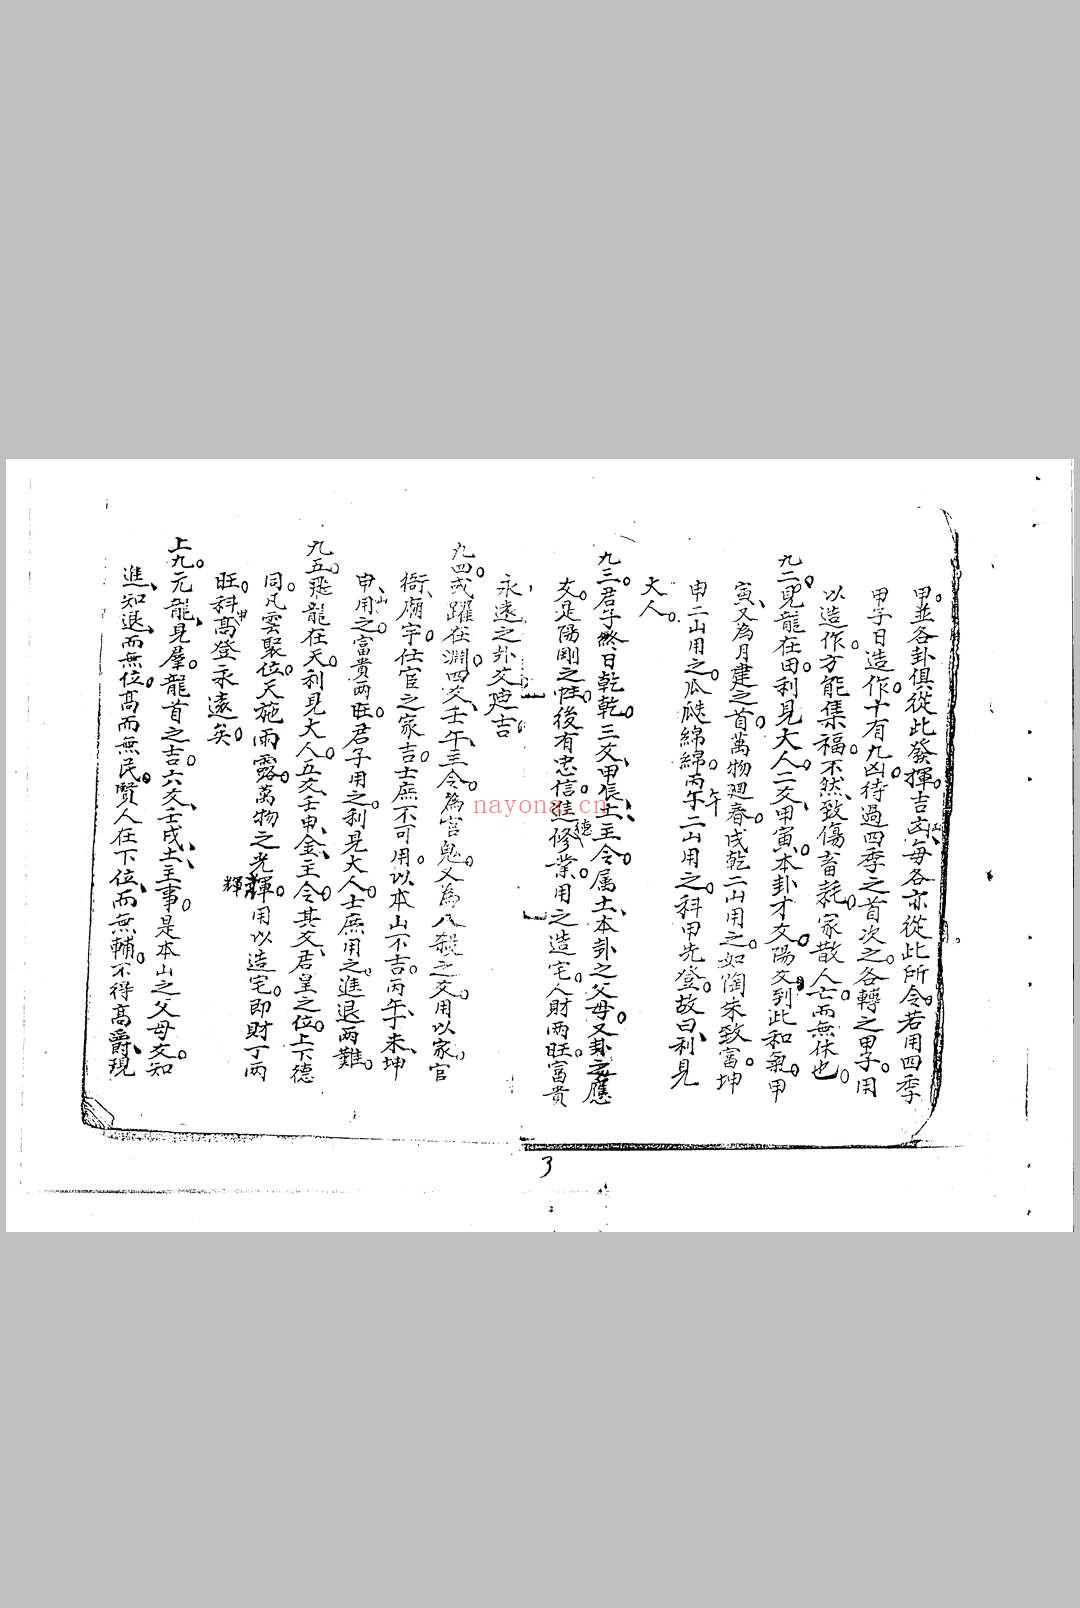 甲並各卦俱從此發揮。吉凶每各亦從此所令。若用四季
甲子日造作。十有九凶。待過四季之首次之。各轉之甲子。用
以造作。方能集福。不然、致傷畜耗。家散人亡。而無休也。
九二。見龍在田。利見大人。二爻、甲寅。本卦才爻。陽爻到此和氣。甲
寅、又為月建之首。萬物廻春。戌乾二山用之。如陶朱致富。坤
申二山用之。瓜瓞綿綿。丙午二山用之。科甲先登。故曰、利見
午
大人。
九三。君子終日乾乾。三爻、甲辰、土主令。属土、本卦之父母。又卦之應
爻。是陽剛之性。後有忠信。進修業。用之造宅。人財兩旺。富貴
德
永遠之卦爻
吉。
九四。或躍在淵。四爻、壬午、主令。為官鬼。又為八殺之爻。用以家官
衙、廟宇。仕宦之家吉。士庶不可用。以本山不吉。丙午、未坤
申、用之。富貴两旺。君子用之。利見大人。士庶用之。進退两難。
山
九五。飛龍在天。利見大人。五爻、壬申、金、主令。其爻、君皇之位。上下德
同。凡雲聚位。天施雨露。萬物之光輝。用以造宅。即財丁两
輝
旺。科高登永遠矣。
甲
上九。亢龍、見羣。龍首之吉。六爻、壬戌、土、主事。是本山之父母爻。知
進、知退、而無位。高而無民。賢人在下位、而無輔。不得高爵、現
3
nayona.cn